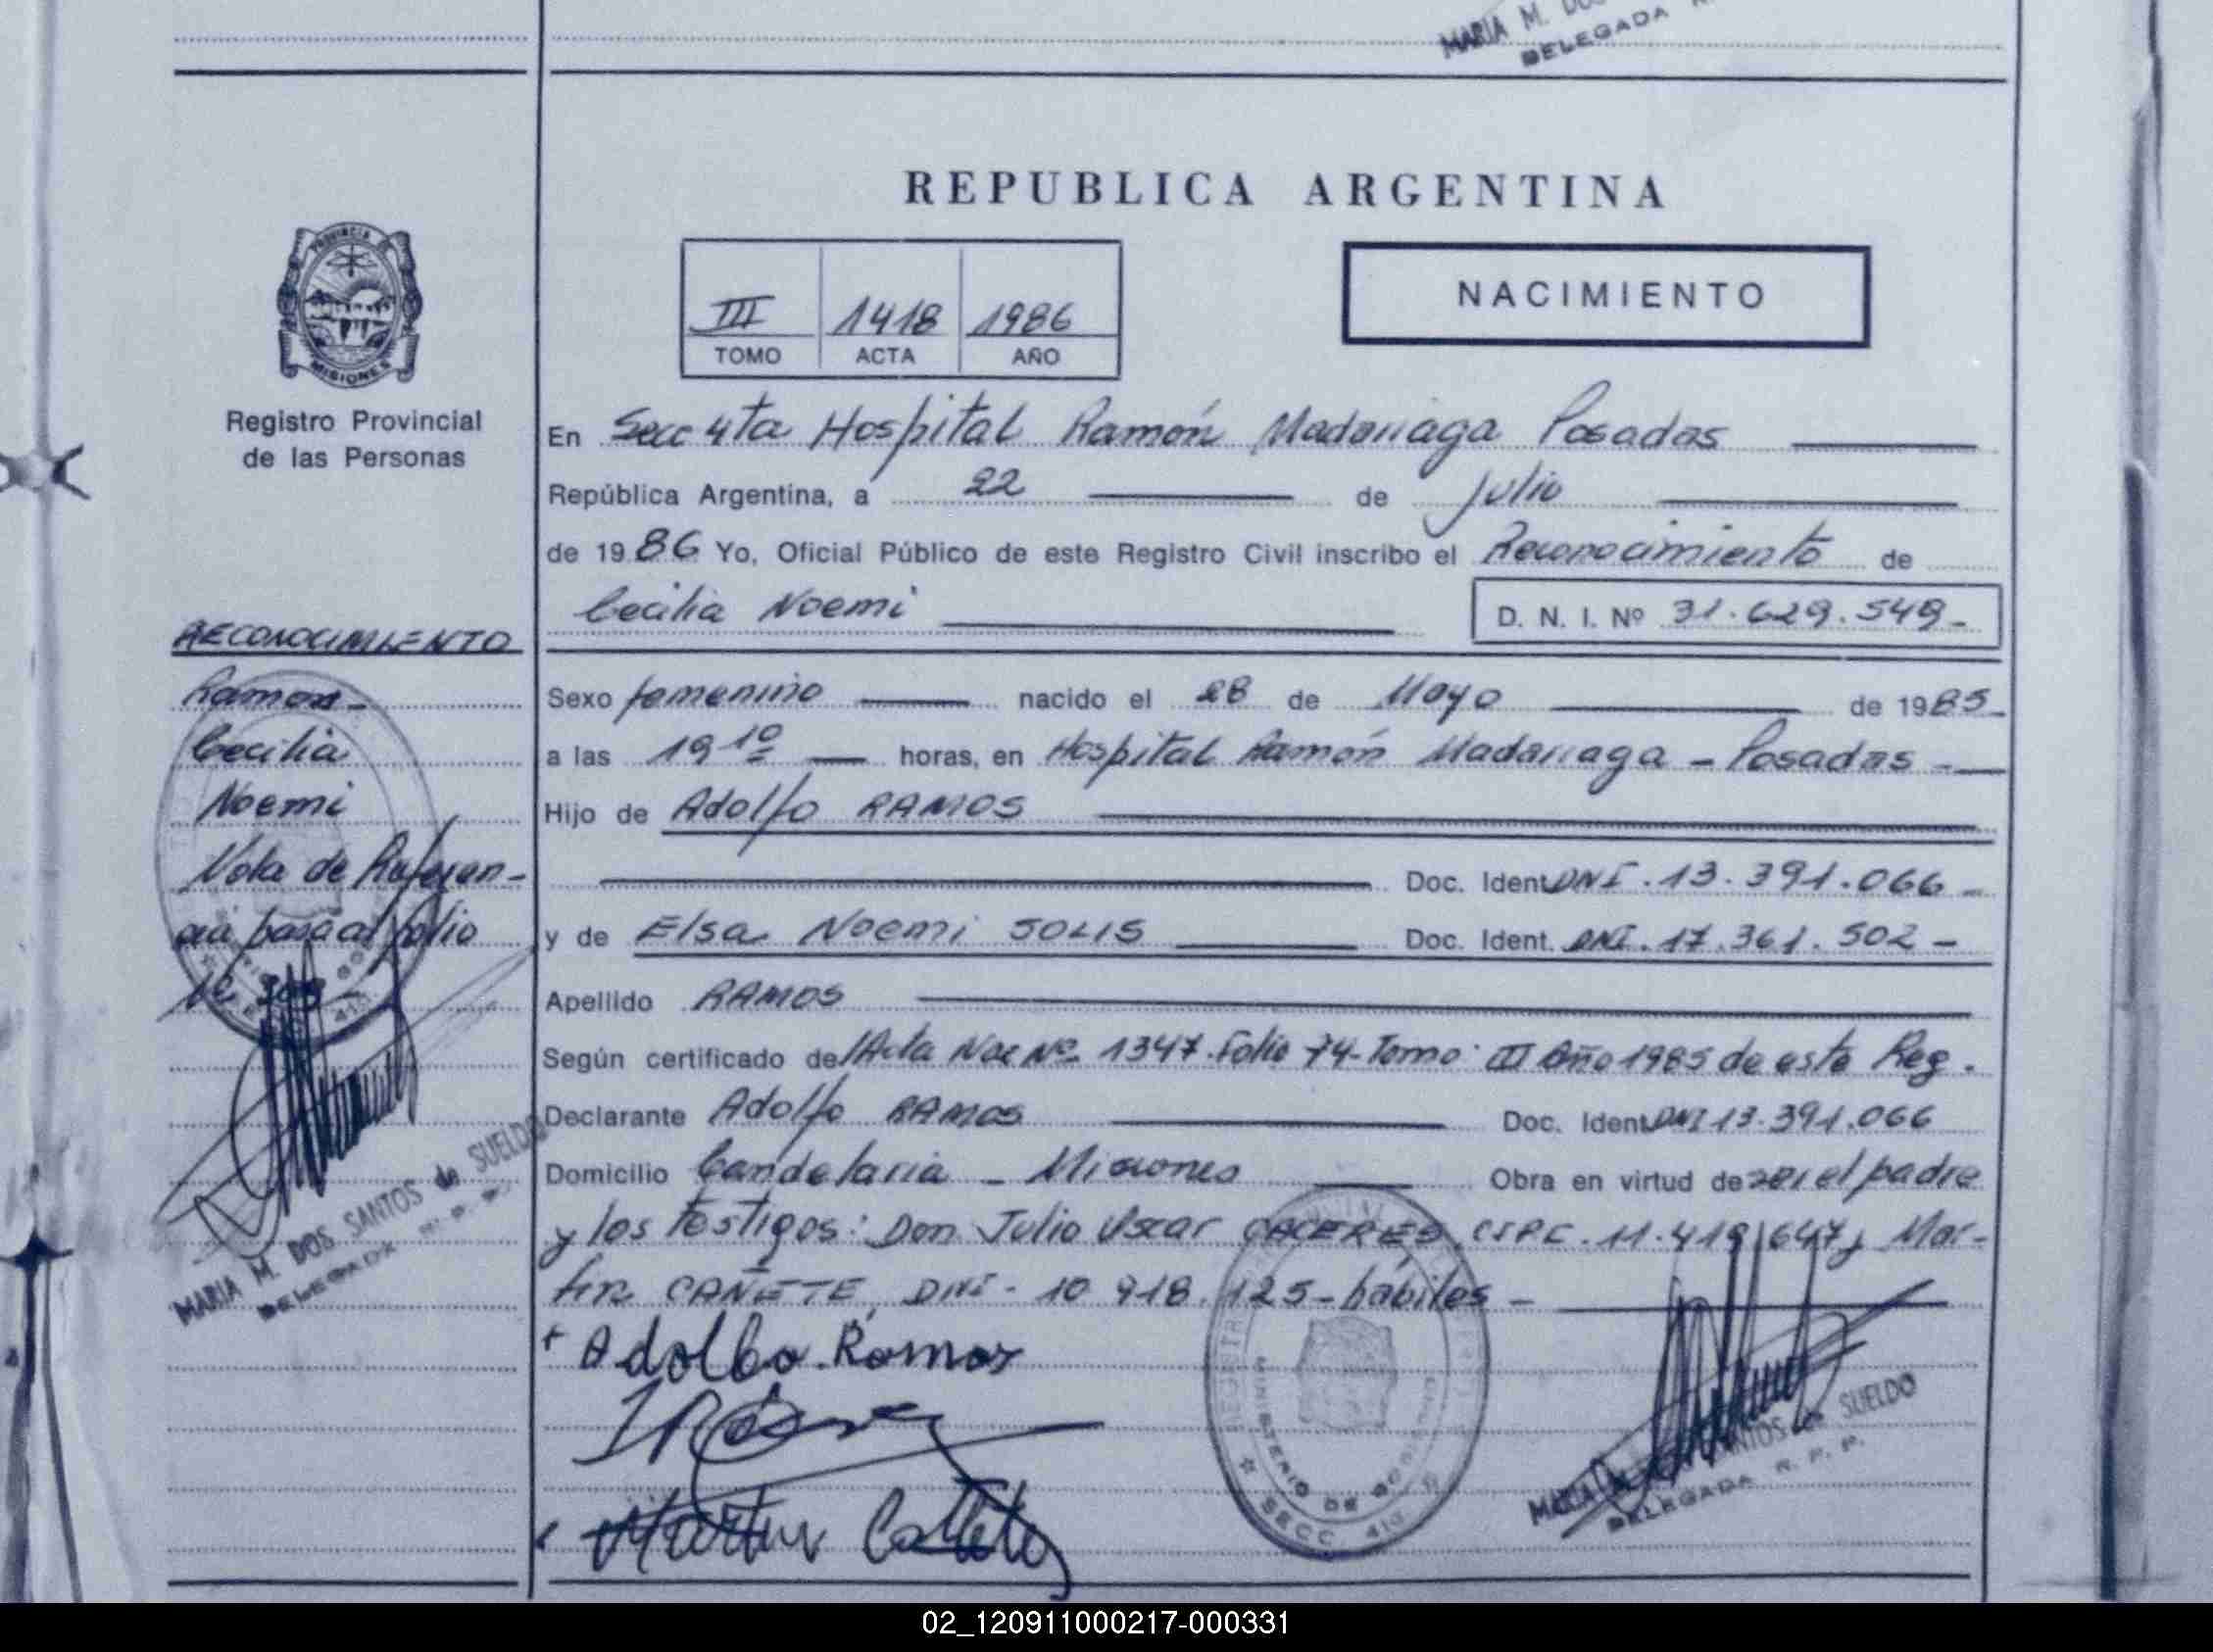 MARIA M. DOS
DELEGADA R.
REPUBLICA ARGENTINA
PROVINCIA DE
MISIONES
Registro Provincial
de las Personas
III 1418 1986
TOMO ACTA AÑO
NACIMIENTO
En Secc 4ta Hospital Ramón Madariaga Posadas
República Argentina, a 22 de julio
de 1986 Yo, Oficial Público de este Registro Civil inscribo el Reconocimiento de
Cecilia Noemi
D. N. I. Nº 31.629.549-
RECONOCIMIENTO
Ramos-
Cecilia
Noemi
Nota de Referen-
cia pasa al folio
Sexo femenino nacido el 28 de Mayo de 1985-
a las 19 10 horas, en Hospital Ramón Madariaga - Posadas -
Hijo de Adolfo RAMOS
Doc. Ident. DNI. 13.391.066-
y de Elsa Noemi SOLIS Doc. Ident. DNI. 17.361.502-
Apellido RAMOS
Según certificado del Acta Nac Nº 1347. Folio 74-Tomo: III Año 1985 de este Reg.
Declarante Adolfo RAMOS Doc. Ident. DNI 13.391.066
Domicilio Candelaria - Misiones Obra en virtud de ser el padre
y los testigos: Don Julio Oscar CACERES, 11.419.647 y Mar-
tin CAÑETE, DNI- 10 918.125-hábiles-
Adolfo Ramos
Martin Cañete
MARIA M. DOS SANTOS de SUELDO
DELEGADA R. P. P.
REGISTRO
MINISTERIO DE GOB
SECC. 4ta
MARIA SANTOS de SUELDO
DELEGADA R. P. P.
02_120911000217-000331